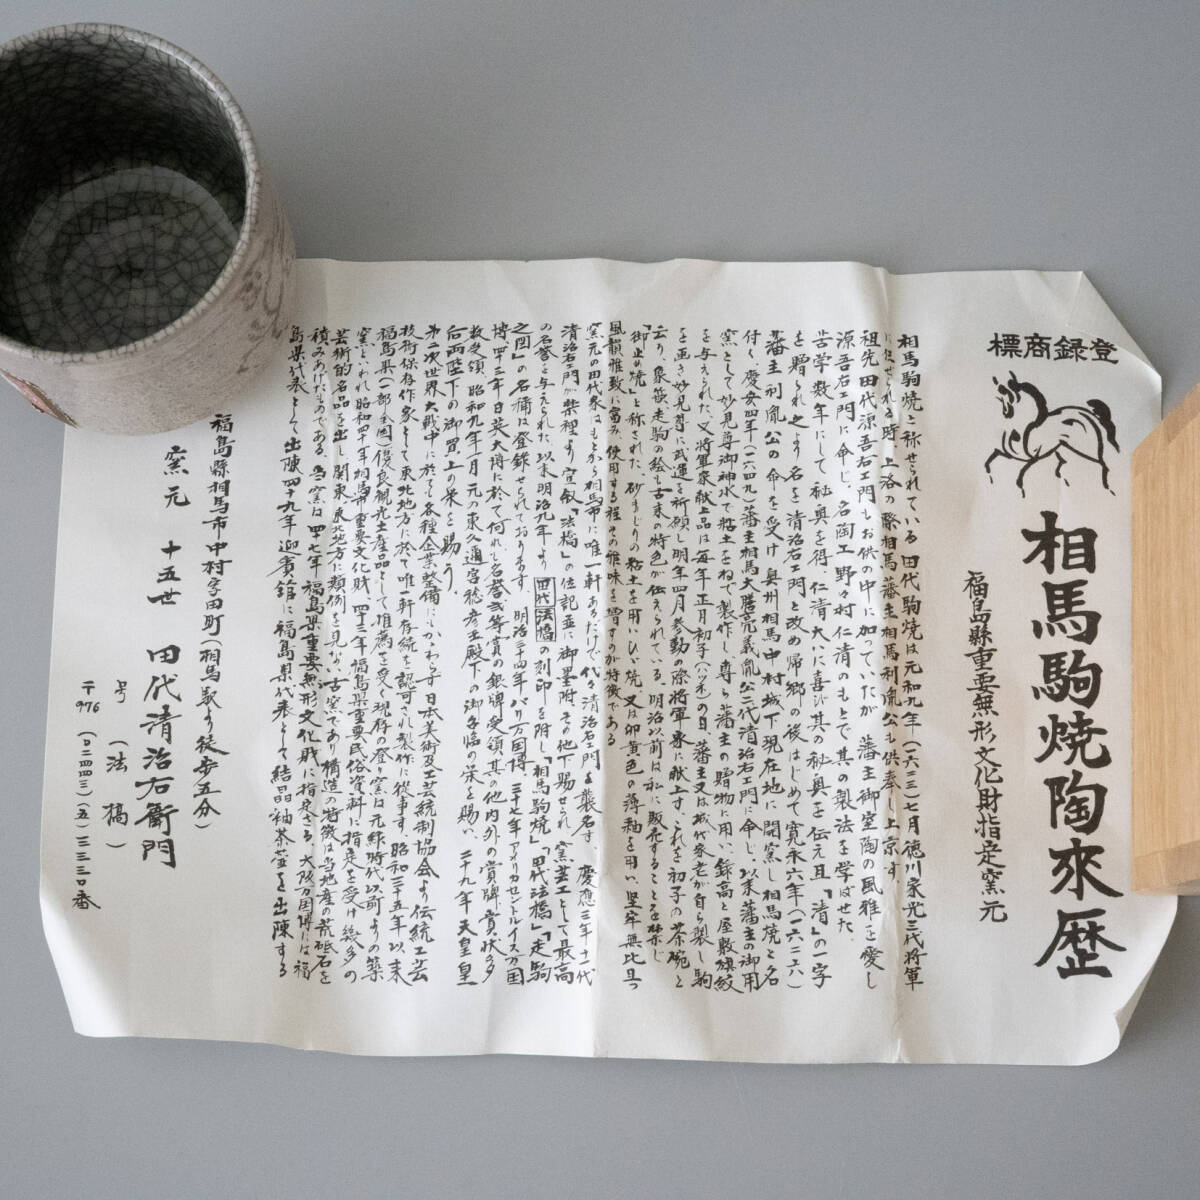 登録商標
相馬駒焼陶来歴
福島縣重要無形文化財指定窯元
相馬駒焼と称せられている田代駒焼は元和九年(一六二三)七月徳川家光三代将軍
に任せられる時、上洛の際相馬藩主相馬利胤公も供奉し上京す。
祖先田代源吾右エ門もお供の中に加っていたが 藩主御室陶の風雅を愛し
源吾右エ門に命じ、名陶工野々村仁清のもとで其の製法を学ばせた。
苦学数年にして秘奥を得 仁清大いに喜び其の秘奥を伝え且「清」の一字
を贈られ之より名を清治右エ門と改め帰郷の後はじめて寛永六年(一六二六)
藩主利胤公の命を受け奥州相馬中村城下現在地に開窯し相馬焼と名
付く慶安四年(一六四九)藩主相馬大膳亮義胤公二代清治右エ門に命じ、以来藩主の御用
窯として妙見尊御神水で粘土をねて製作し専ら藩主の贈物に用い、録高と屋敷旗紋
を与えられた、又将軍家献上品は毎年正月初子(ハツネ)の日、藩主又は城代家老が自ら製し駒
を画き妙見尊に武運を祈願し明年四月参勤の際将軍家に献上す、これを初子の茶碗と
云り、象嵌走駒の絵も古来の特色が伝えられている。明治以前は私に販売することを禁じ
「御止め焼」と称された、砂まじりの粘土を用いひび焼又は卵黄色の薄釉を用い、堅牢無比且つ
風韻雅致に富み、使用する程その雅味を増すのが特徴である
窯元の田代家はもとから相馬市に唯一軒あるだけで代々清治右エ門を襲名す、慶應三年十一代
清治右エ門が禁裡より宣叙「法橋」の位記並に御墨附、その他下賜せられ窯芸工として最高
の名誉を与えられた、以来明治九年より田代法橋の刻印を附し「相馬駒焼」「田代法橋」「走駒
之図」の名称は登録せられております。明治三十四年パリ万国博、三十七年アメリカセントルイス万国
博、四三年日英大博に於て何れも名誉弐等賞の銀牌受領、其の他内外の賞牌、賞状の多
数受領、昭和九年一月元の東久邇宮稔彦王殿下の御台臨の栄を賜い、三十九年天皇皇
后両陛下の御買上の栄を賜う。
第二次世界大戦中に於ても各種企業整備にもかかわらず日本美術及工芸統制協会より伝統工芸
技術保存作家として東北地方に於て唯一軒存続を認可され製作に従事す、昭和二十五年以来
福島県(一部全国)優良観光土産品として推薦を受く、現存の登り窯は元禄時代以前よりの築
窯といわれ、昭和四十年相馬市重要文化財、四三年福島県重要民俗資料に指定を受け幾多の
芸術的名品を出し関東、東北地方に類例を見ない古窯であり構造の特徴は当地産の荒砥石を
積みあげたものである、当窯は四七年福島県重要無形文化財に指定さる、大阪万国博には福
島県代表として出陳四十九年迎賓館に福島県代表として結晶釉茶壷を出陳する
福島縣相馬市中村字田町(相馬駅より徒歩五分)
窯元 十五世 田代清治右衛門
号(法橋)
〒976 (〇二四四三)(五)三三三〇番